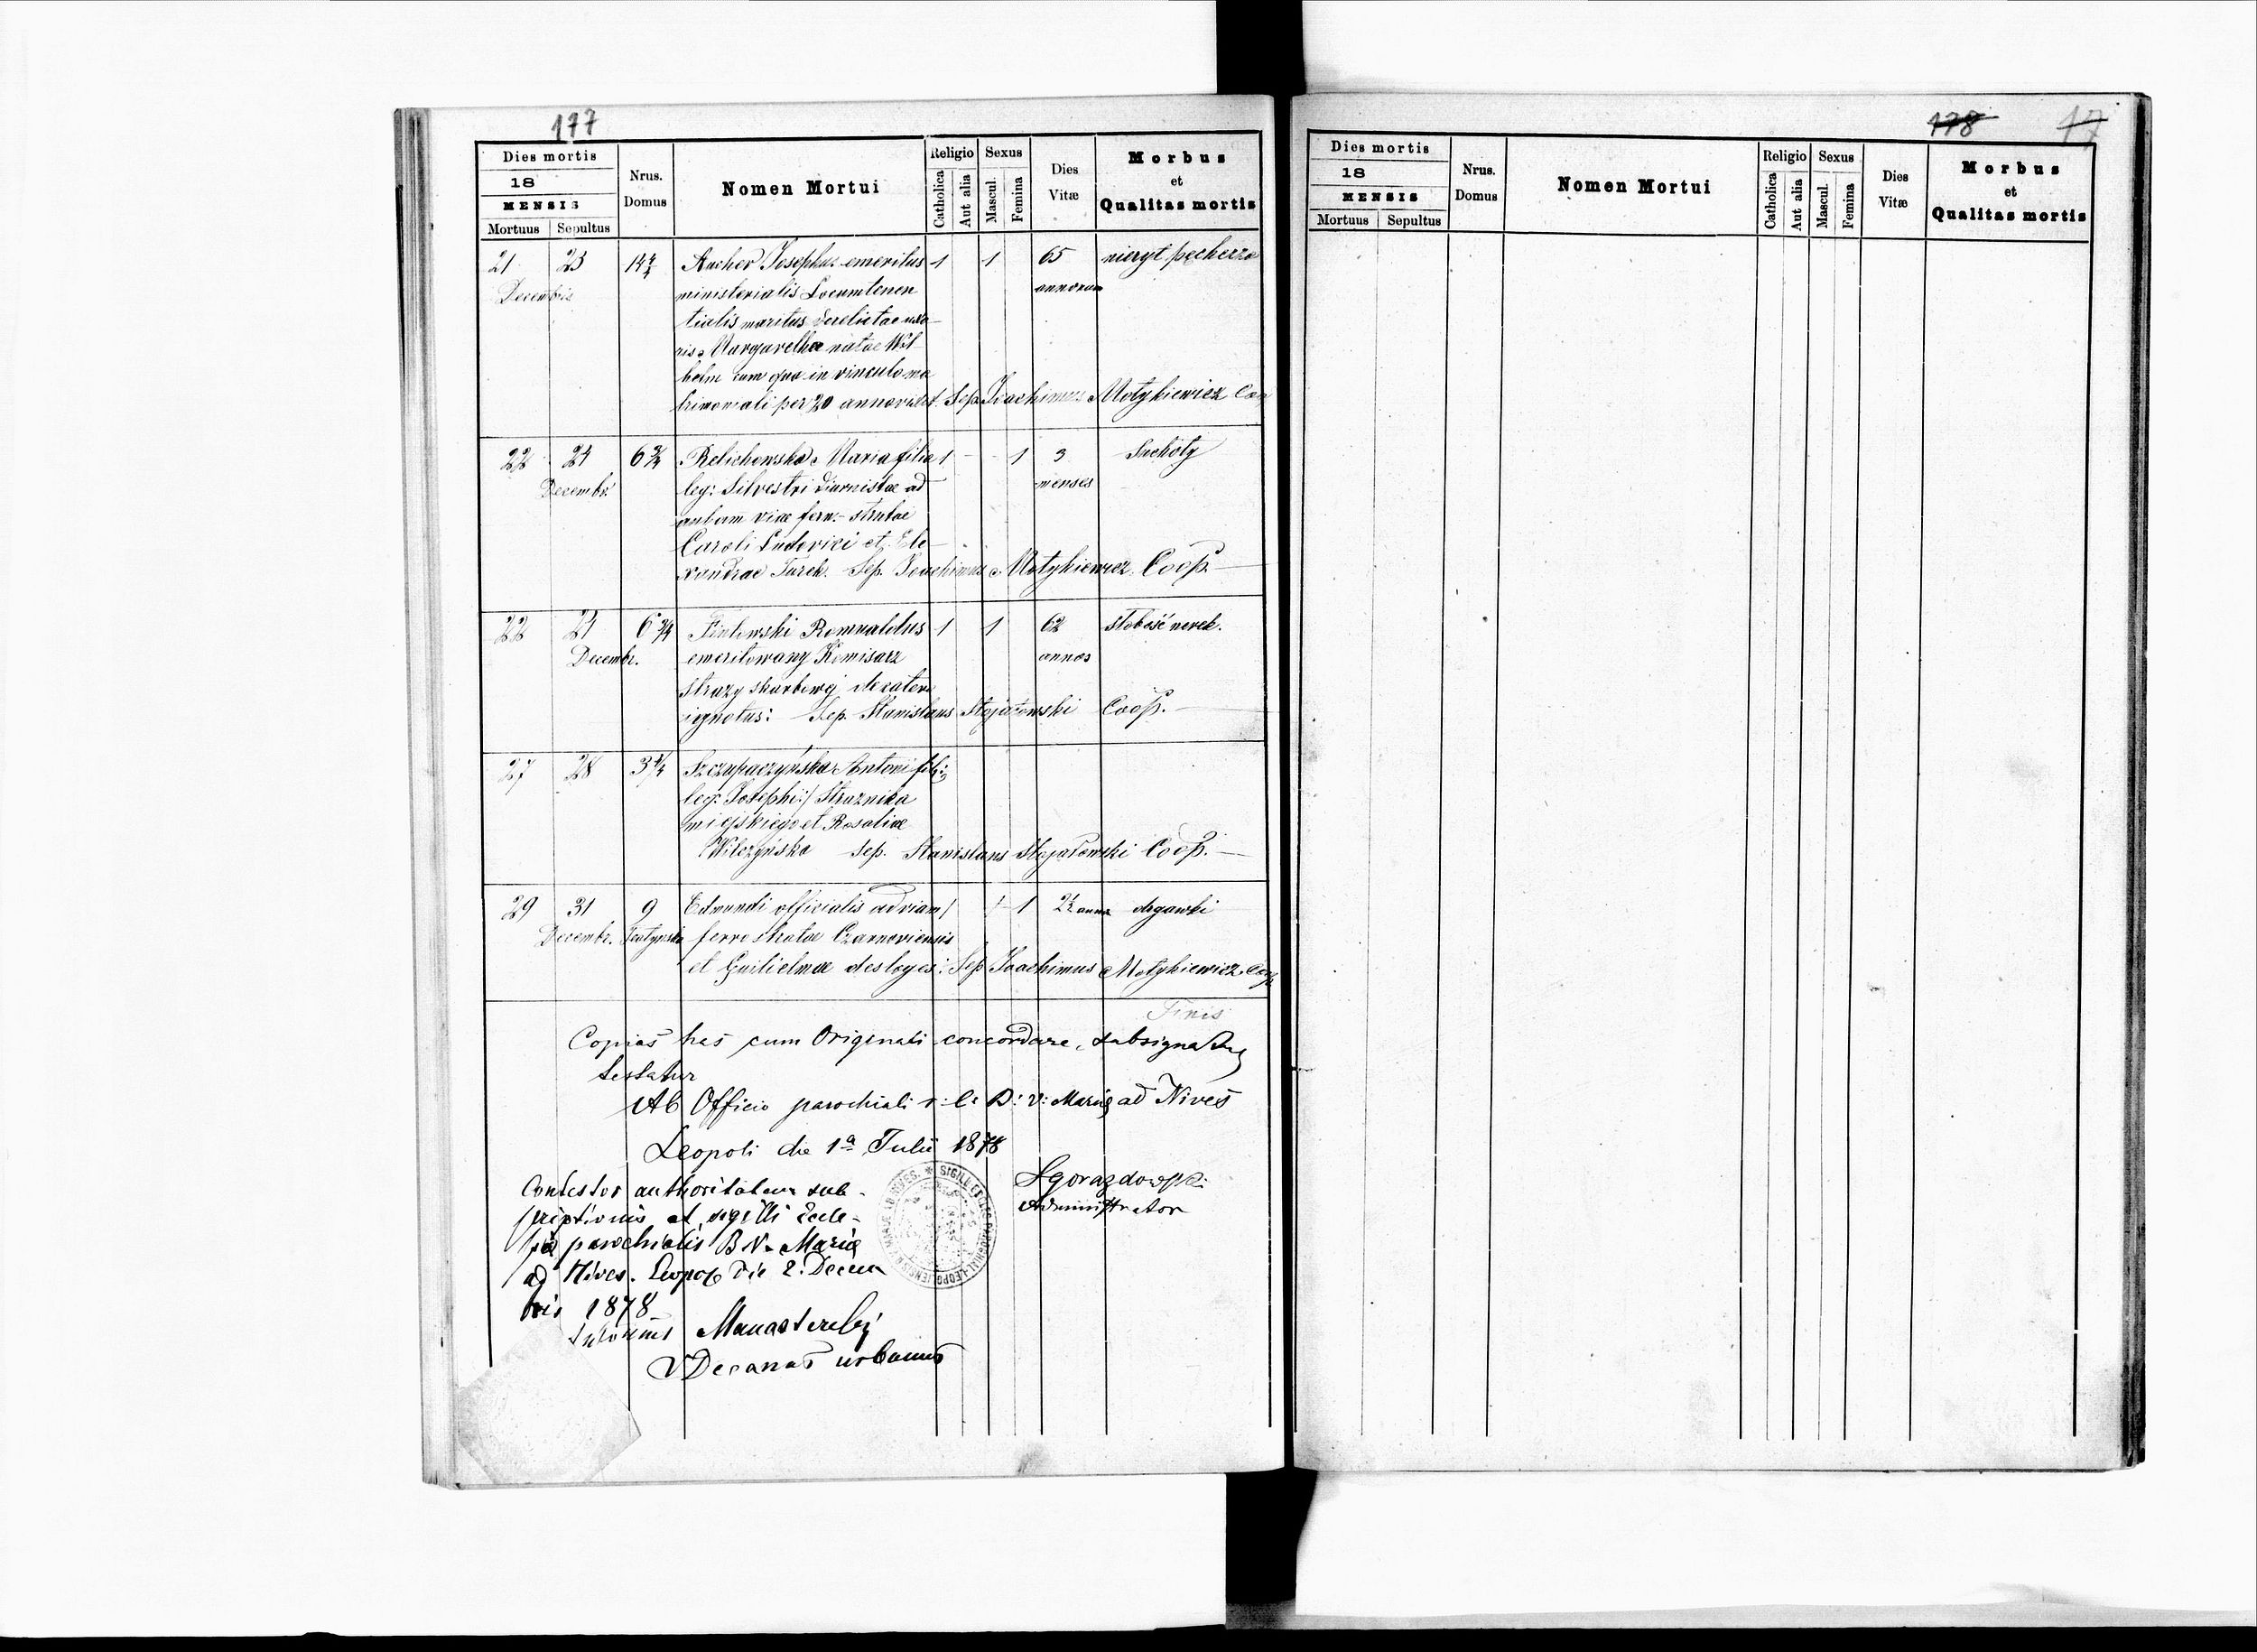 177
Dies mortis
18
MENSIS
Mortuus Sepultus
Nrus. Domus
Nomen Mortui
Religio
Catholica Aut alia
Sexus
Mascul. Femina
Dies Vitæ
Morbus et Qualitas mortis
21 23 14 4/4 Aucher Josephus emeritus 1 1 65
Decembris ministerialis Locumtenen annorum
tialis maritus derelictae uxo
ris Margaretha natae Wil
helm cum qua in vinculo ma
trimoniali per 20 annos vixit. Sep. Joachimus Motykiewicz Coop
22 24 6 3/4 Relichowska Maria filia 1 1 3 Suchoty
Decembr. leg: Silvestri diurnistae ad menses
viae ferr. stratae
Caroli Ludovici et Ale
xandrae Turek. Sep. Joachimus Motykiewicz Coop.
22 24 6 3/4 Romualdus 1 1 62 słabość
Decembr. emeritowany Komisarz annos
straży skarbowej de caetero
ignotus: Sep. Stanislaus Stojałowski Coop.
27 28 3 1/4 Antoni fil:
leg: Josephi Strażnika
miejskiego et Rosaliae
Wilczyńska Sep. Stanislaus Stojałowski Coop.
29 31 9 Edmundi officialis ad viam 1 1 2½ drgawki
Decembr. ferro stratae Czarnoviensis
et Guilielmae Sep Joachimus Motykiewicz Coop
Finis
Copias has cum Originali concordare, subsignatus
testatur
Ab Officio parochiali r: l: B: V: Mariæ ad Nives
Leopoli die 1ª Julii 1878
Sgorazdowski
Administrator
Contestor authoritatem sub-
scriptionis et sigilli Eccle-
siæ parochialis B V. Mariæ
ad Nives. Leopoli die 2. Decem
bris 1878
Manasterski
VDecanus urbanus
178 17
Dies mortis
18
MENSIS
Mortuus Sepultus
Nrus. Domus
Nomen Mortui
Religio
Catholica Aut alia
Sexus
Mascul. Femina
Dies Vitæ
Morbus et Qualitas mortis